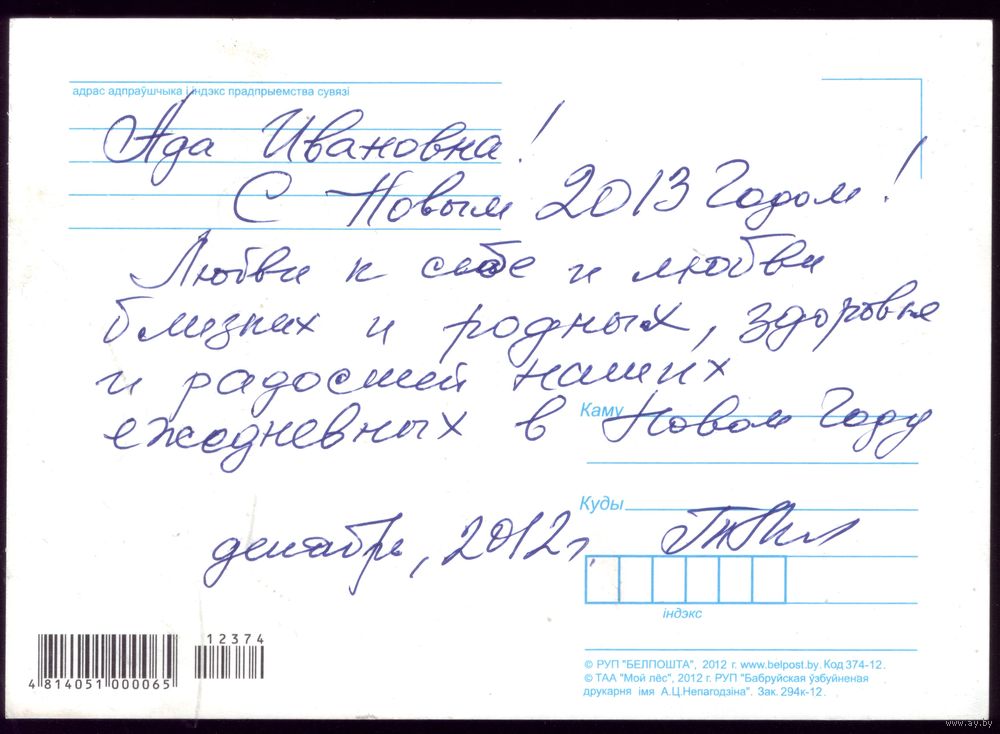 адрас адпраўшчыка і індэкс прадпрыемства сувязі
Ада Ивановна!
С Новым 2013 Годом!
Любви к себе и любви
близких и родных, здоровья
и радостей наших
ежедневных в Новом Году
Каму
Куды
декабрь, 2012 г.
індэкс
12374
4 814051 000065
© РУП "БЕЛПОШТА", 2012 г. www.belpost.by. Код 374-12.
© ТАА "Мой лёс", 2012 г. РУП "Бабруйская ўзбуйненая
друкарня імя А.Ц.Непагодзіна". Зак. 294к-12.
www.ay.by